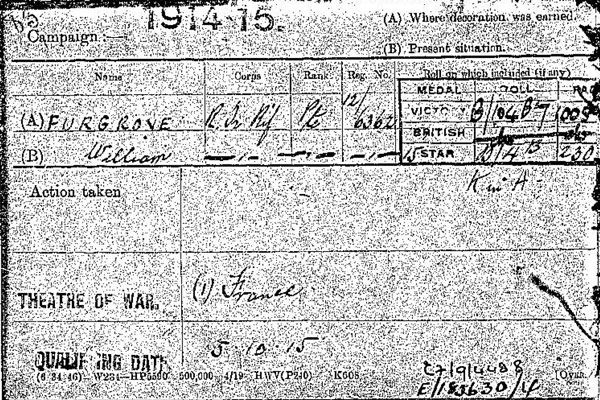 1914-15.
Campaign :—
(A) Where decoration was earned.
(B) Present situation.
Name Corps Rank Reg. No. Roll on which included (if any)
MEDAL ROLL PAG
(A) FURGROVE R. Ir Rif Pte 12/6362 VICTORY B/104 B7 1009
BRITISH do do
(B) William — " — — " — — " — 15 STAR D/4 B 230
K in A
Action taken
THEATRE OF WAR. (1) France
QUALIFYING DATE 5-10-15
(6 34 46) W234—HP5590 500,000 4/19 HWV(P240) K608
E/183630/4